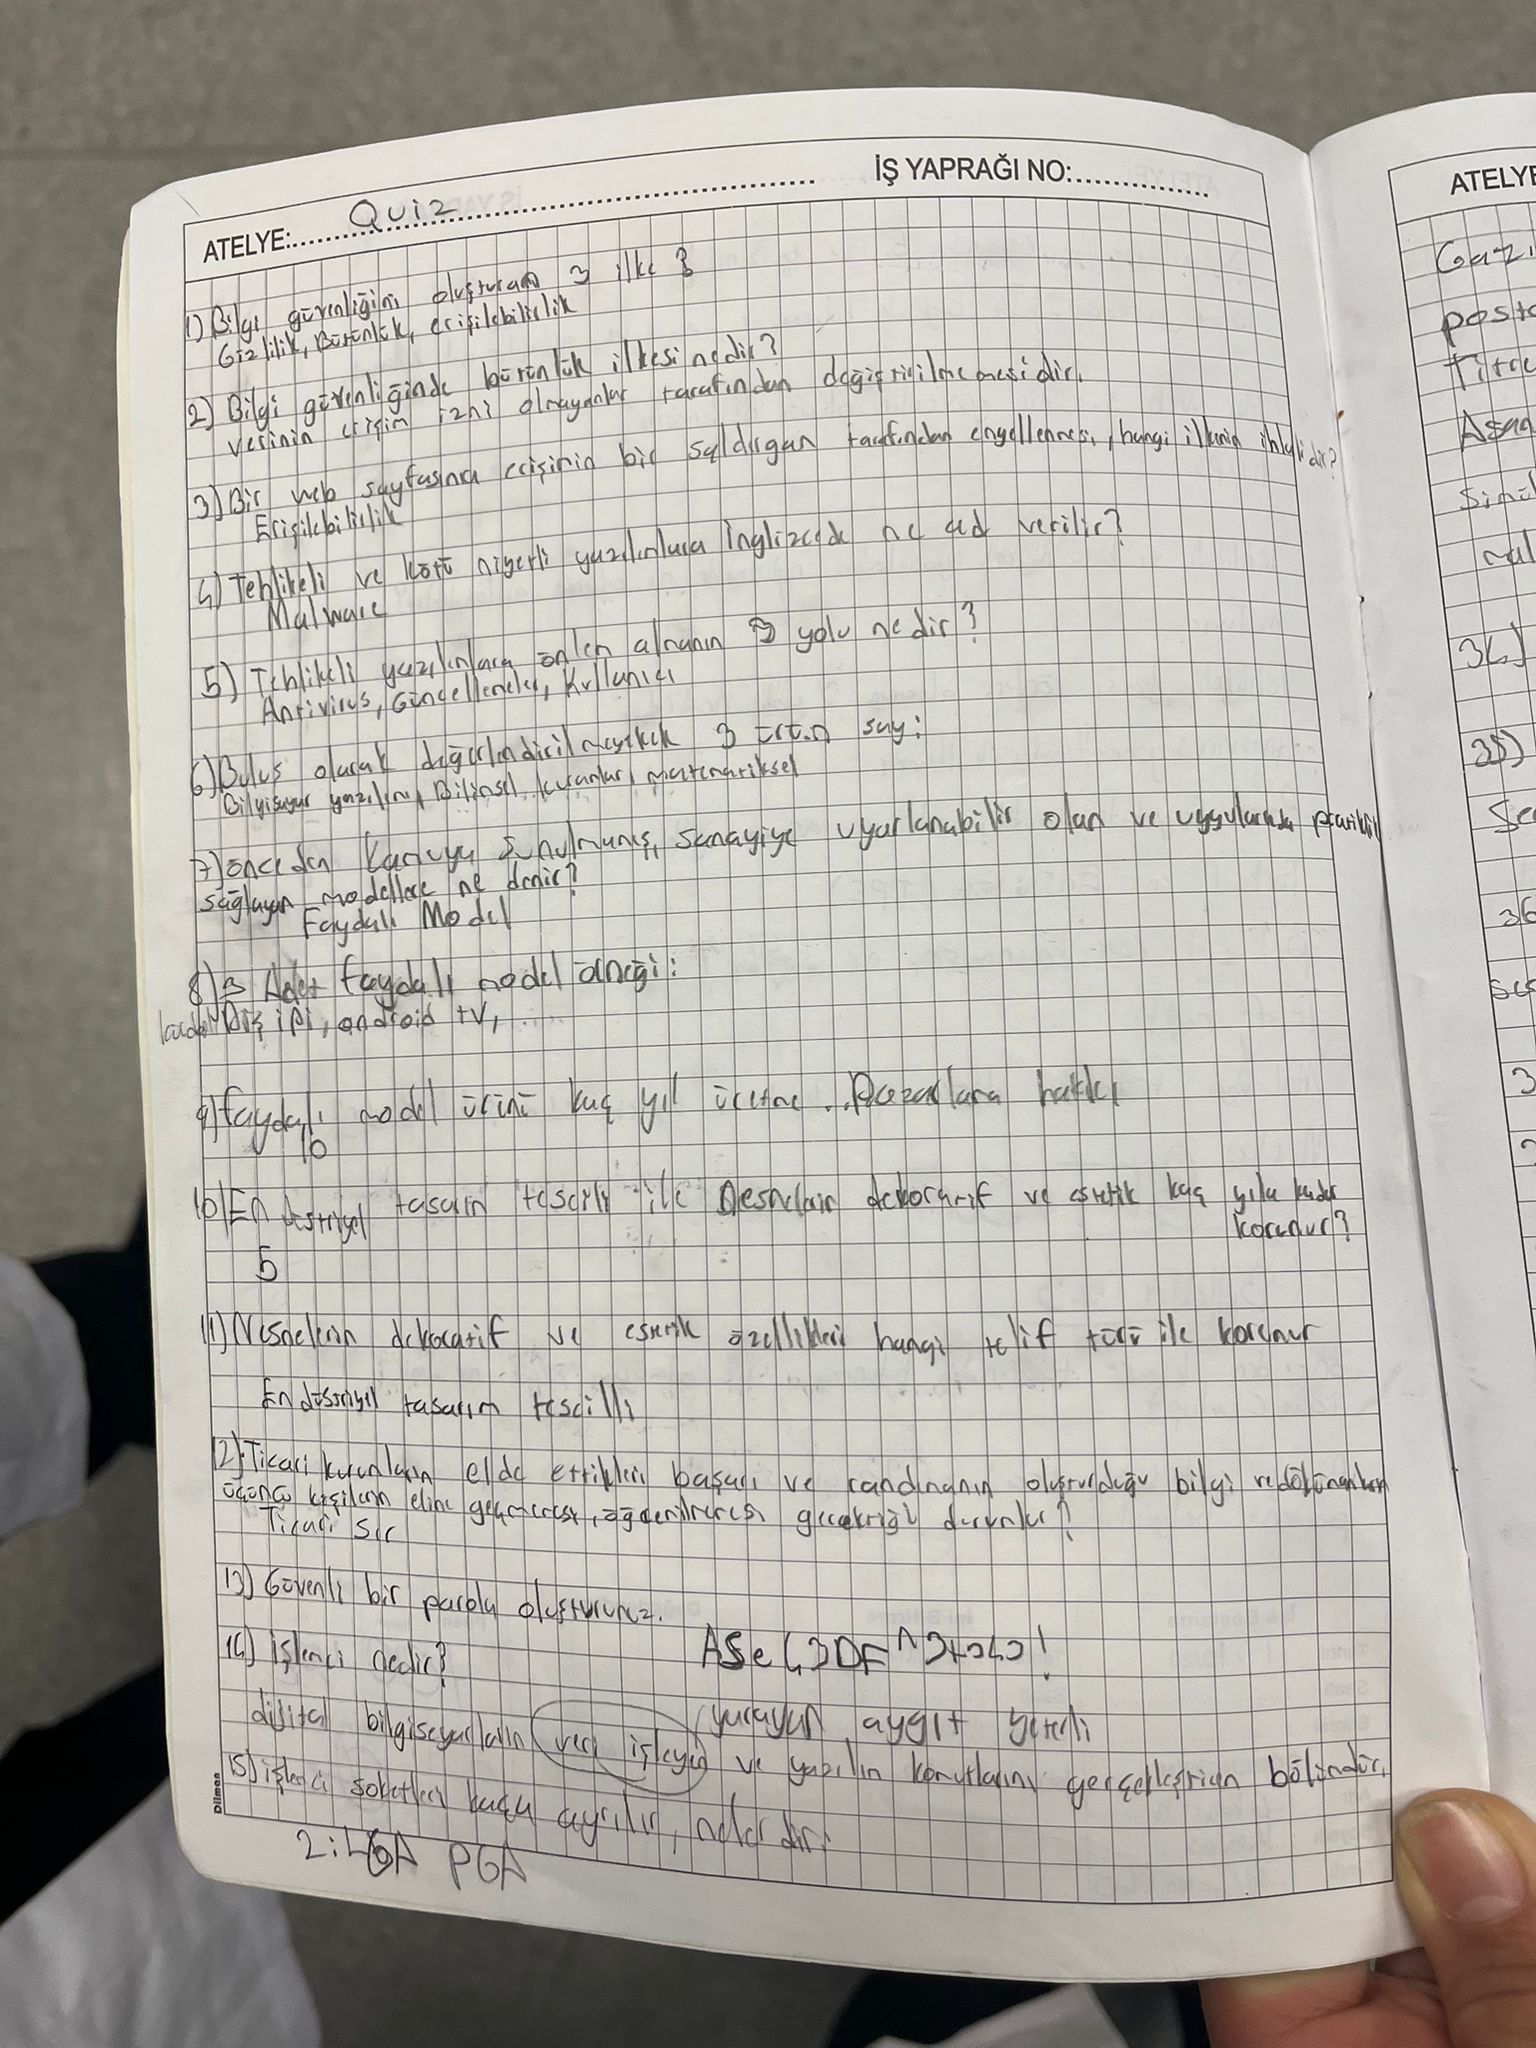 ATELYE: Quiz İŞ YAPRAĞI NO:
1) Bilgi güvenliğini oluşturan 3 ilke
Gizlilik, Bütünlük, erişilebilirlik
2) Bilgi güvenliğinde bütünlük ilkesi nedir?
verinin erişim izni olmayanlar tarafından değiştirilmemesidir.
3) Bir web sayfasına erişimin bir saldırgan tarafından engellenmesi, hangi ilkenin ihlalidir?
Erişilebilirlik
4) Tehlikeli ve kötü niyetli yazılımlara İngilizcede ne ad verilir?
Malware
5) Tehlikeli yazılımlara önlem almanın 3 yolu nedir?
Antivirüs, Güncellemeler, Kullanıcı
6) Buluş olarak değerlendirilmeyecek 3 ürün say:
Bilgisayar yazılımı, Bilimsel kuramlar, matematiksel
7) önceden kamuya sunulmamış, sanayiye uyarlanabilir olan ve uygulamada pratiklik
sağlayan modellere ne denir?
Faydalı Model
8) 3 Adet faydalı model örneği:
Diş ipi, android tv, .....
9) faydalı model ürünü kaç yıl üretme .. Pazarlama hakkı
10
10) Endüstriyel tasarım tescili ile Nesnelerin dekoratif ve estetik kaç yıla kadar
korunur?
5
11) Nesnelerin dekoratif ve estetik özellikleri hangi telif türü ile korunur
Endüstriyel tasarım tescilli
12) Ticari kurumların elde ettikleri başarı ve randımanın oluşturduğu bilgi ve dökümanların
üçüncü kişilerin eline geçmemesi, öğrenilmemesi gerektiği durumlar?
Ticari Sır
13) Güvenli bir parola oluşturunuz.
14) işlemci nedir?
yarayan aygıt yeterli
dijital bilgisayarların veri işleyen ve yazılım komutlarını gerçekleştiren bölümdür.
15) işlemci soketleri kaça ayrılır, nelerdir?
2: LGA PGA
Dilman
ATELYE
Gazi
Titre
36